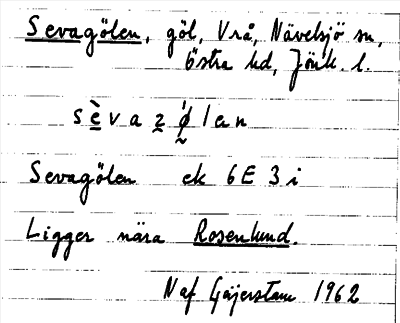 Sevagölen, göl, Vrå, Nävelsjö sn,
Östra hd, Jönk. l.
s è v a z ǿ l e n
Sevagölen ek 6E 3i
Ligger nära Rosenlund.
N af Geijerstam 1962